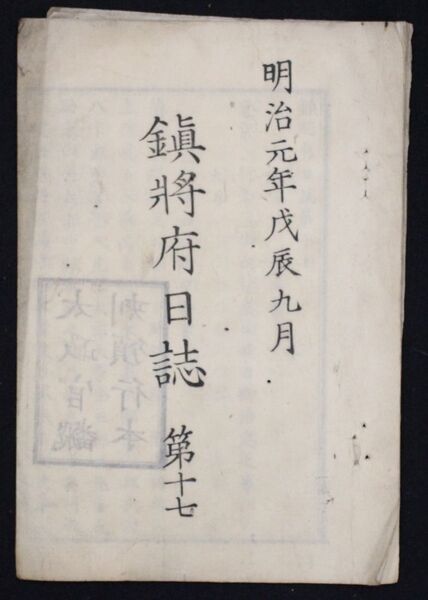 明治元年戊辰九月
鎭將府日誌 第十七